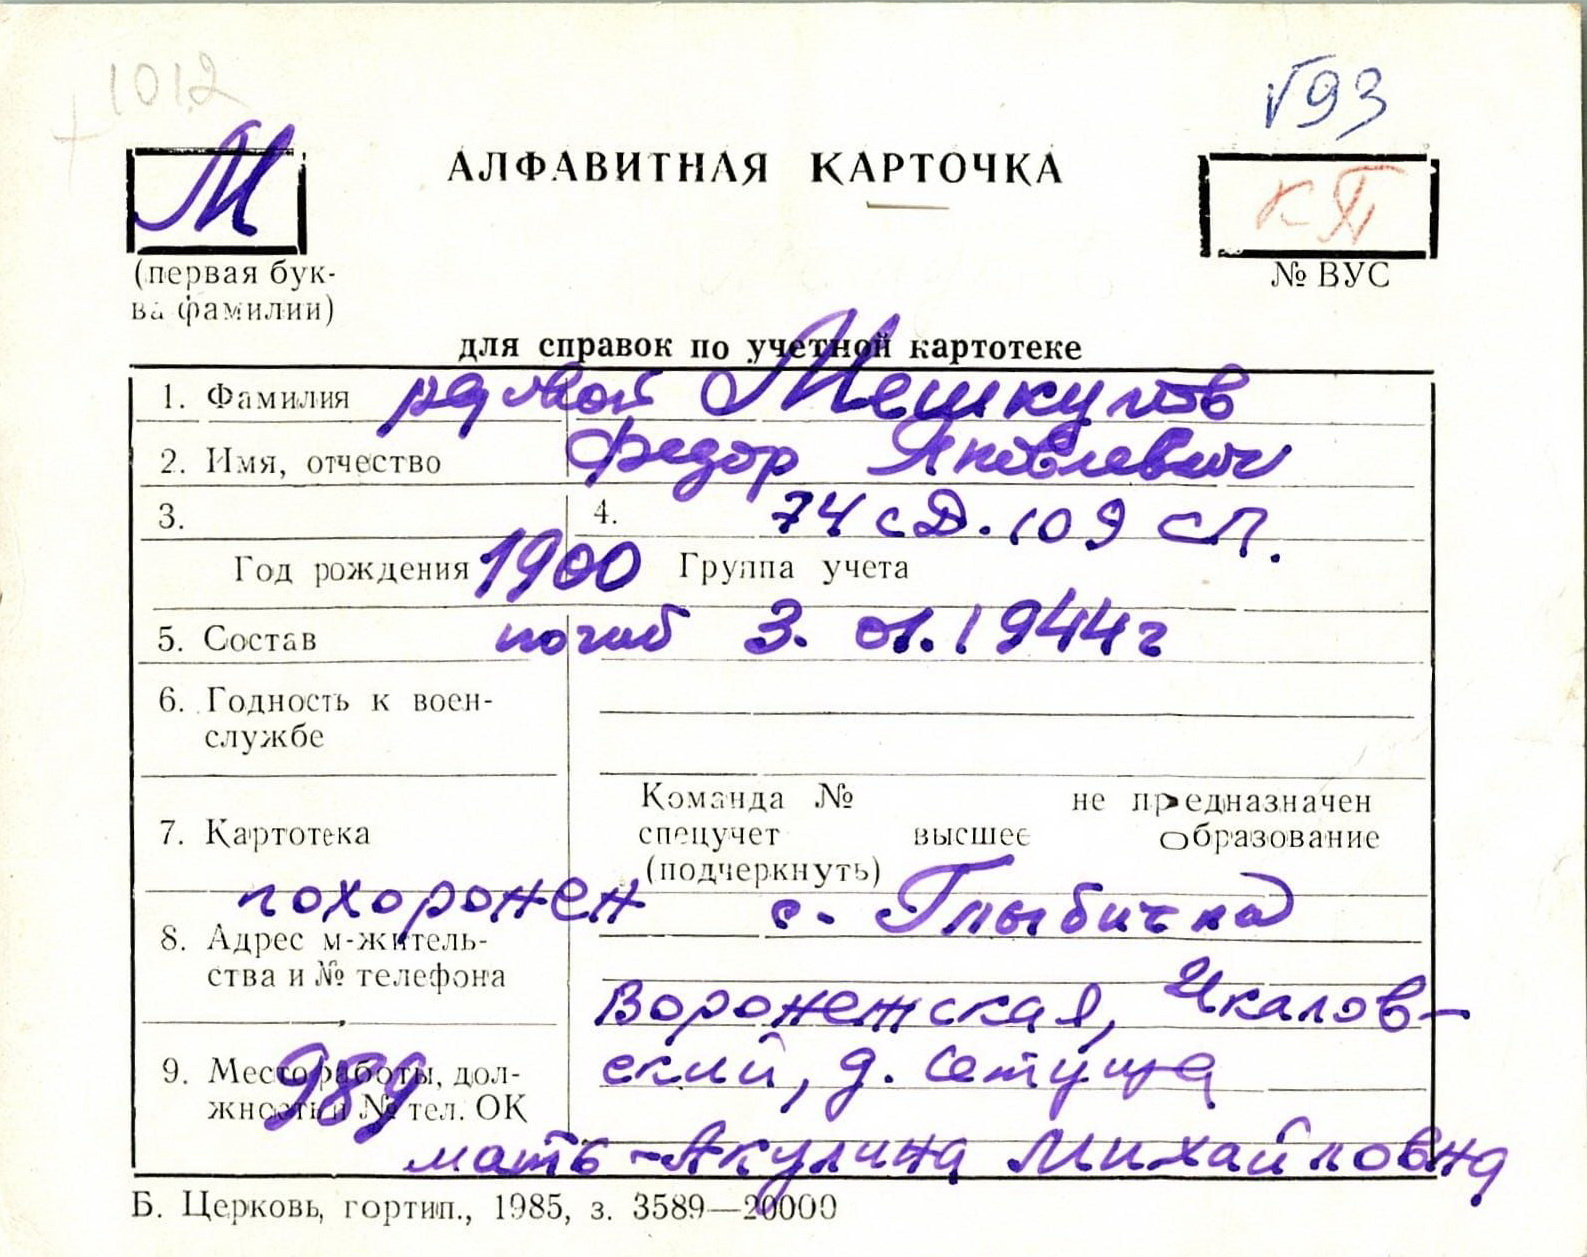 1012
√93
М
АЛФАВИТНАЯ КАРТОЧКА
КП
(первая бук-
ва фамилии)
№ ВУС
для справок по учетной картотеке
1. Фамилия рядовой Мешкутов
2. Имя, отчество Федор Яковлевич
3. 4. 74 сд. 109 сп.
Год рождения 1900 Группа учета
5. Состав погиб 3. 01. 1944 г
6. Годность к воен-
службе
Команда № не предназначен
7. Картотека спецучет высшее образование
(подчеркнуть)
похоронен с. Глыбичка
8. Адрес м-житель-
ства и № телефона
Воронежская, Чкалов-
9. Место работы, дол- ский, д. Сетуща
жность и № тел. ОК
989
мать - Акулина Михайловна
Б. Церковь, гортип., 1985, з. 3589—20000